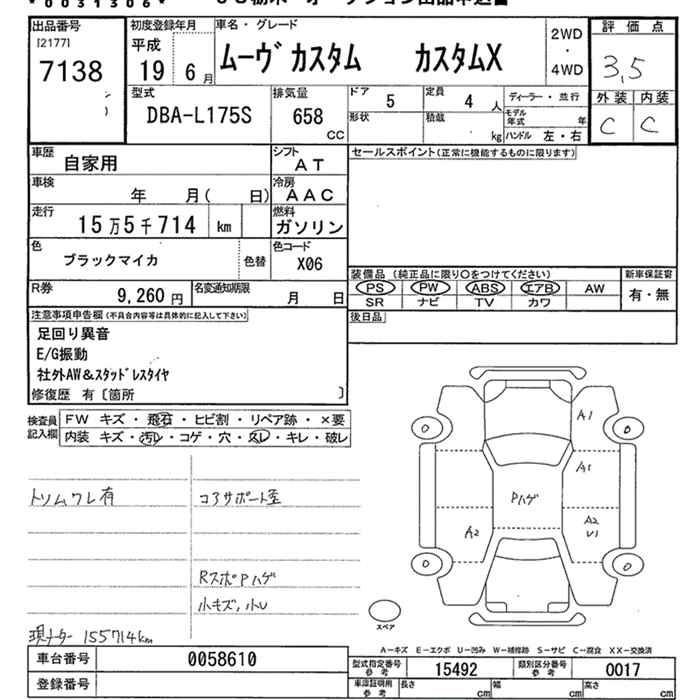 *0031306*
出品番号
[2177]
7138
初度登録年月
平成
19 6月
車名・グレード
ムーヴ カスタム カスタムX
2WD
・
4WD
評価点
3,5
外装 内装
C C
型式
DBA-L175S
排気量
658
CC
ドア
5
定員
4 人
形状
積載
kg
ディーラー・並行
モデル年式 年
ハンドル 左・右
車歴
自家用
シフト
AT
車検
年 月( 日)
冷房
AAC
走行
15万5千714 km
燃料
ガソリン
色
ブラックマイカ
色替
色コード
X06
R券
9,260円
名変通知期限
月 日
セールスポイント(正常に機能するものに限ります)
装備品 (純正品に限り○をつけてください)
PS PW ABS エアB AW
SR ナビ TV カワ
新車保証書
有・無
後日品
注意事項申告欄(不具合内容等は具体的に記入して下さい)
足回り異音
E/G振動
社外AW&スタッドレスタイヤ
修復歴 有〔箇所 〕
検査員記入欄
FW キズ・飛石・ヒビ割・リペア跡・×要
内装 キズ・汚レ・コゲ・穴・スレ・キレ・破レ
トリムワレ有
コアサポート歪
RスポPハゲ
小キズ,小U
現メーター 155714km
A1
A1
Pハゲ
A2
A2
U1
スペア
A-キズ E-エクボ U-凹み W-補修跡 S-サビ C-腐食 XX-交換済
車台番号
0058610
登録番号
型式指定番号
参考
15492
類別区分番号
参考
0017
車庫証明用
参考
長さ cm
幅 cm
高さ cm